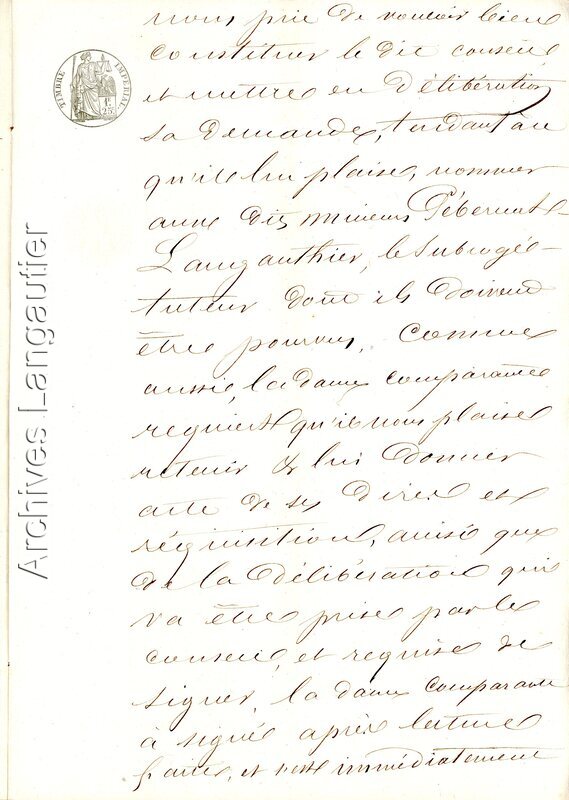 nous prie de vouloir bien
constituer le dit conseil
et mettre en délibération
sa demande, tendant à ce
qu'il lui plaise, nommer
aux dis mineurs Pébernat
Langauthier, le subrogé-
tuteur dont ils doivent
être pourvus, comme
aussi, la dame comparante
requiert qu'il nous plaise
retenir & lui donner
acte de ses dires et
réquisition, ainsi que
de la délibération qui
va être prise par le
conseil, et requise de
signer, la dame comparante
à signé après lecture
faite, et s'est immédiatement
TIMBRE IMPERIAL
1F
25C
Archives Langautier